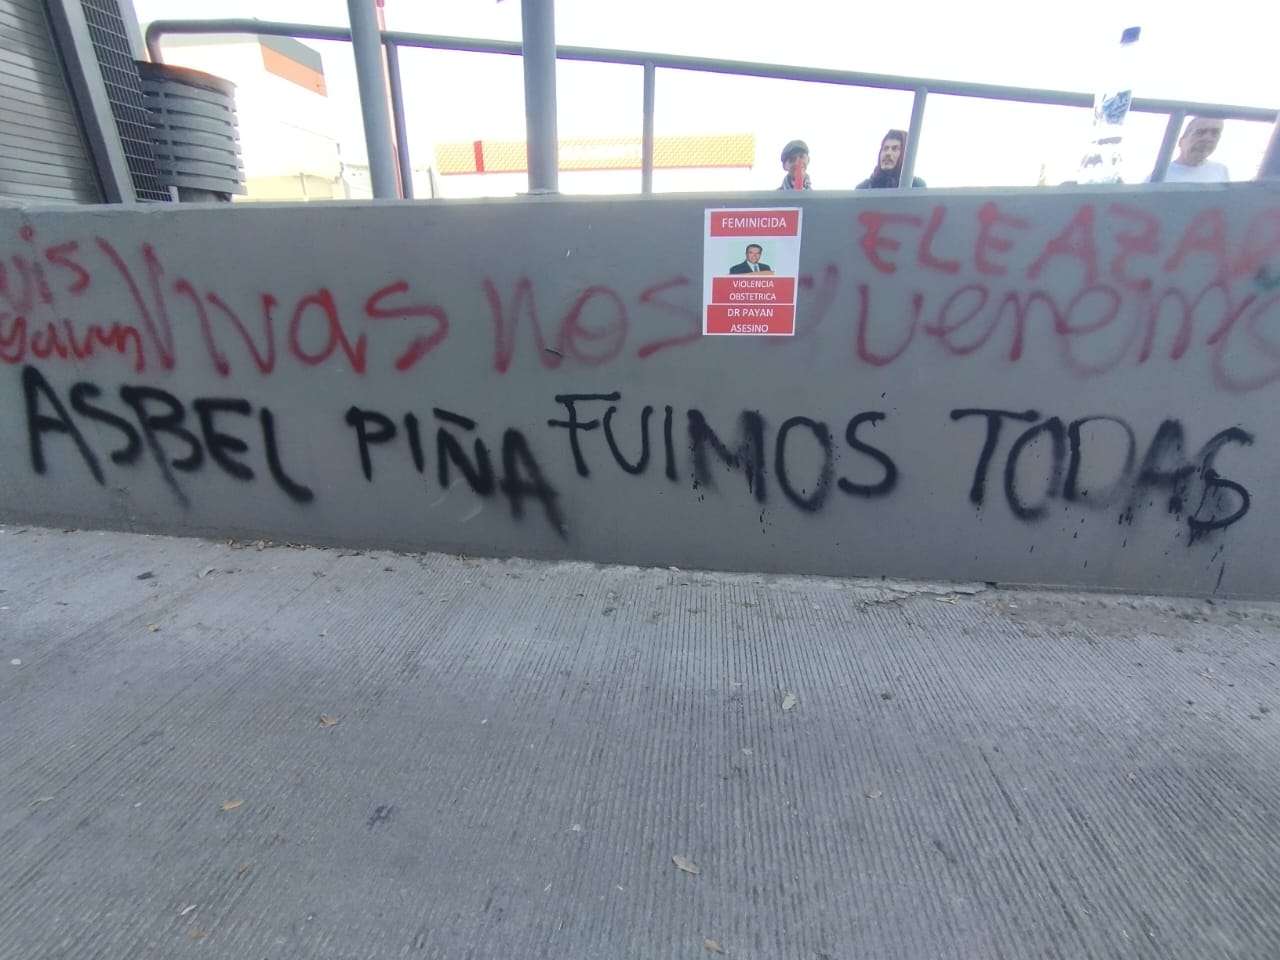 FEMINICIDA
VIOLENCIA
OBSTETRICA
DR PAYAN
ASESINO
ELEAZAR
Vivas nos queremos
ASBEL PIÑA FUIMOS TODAS